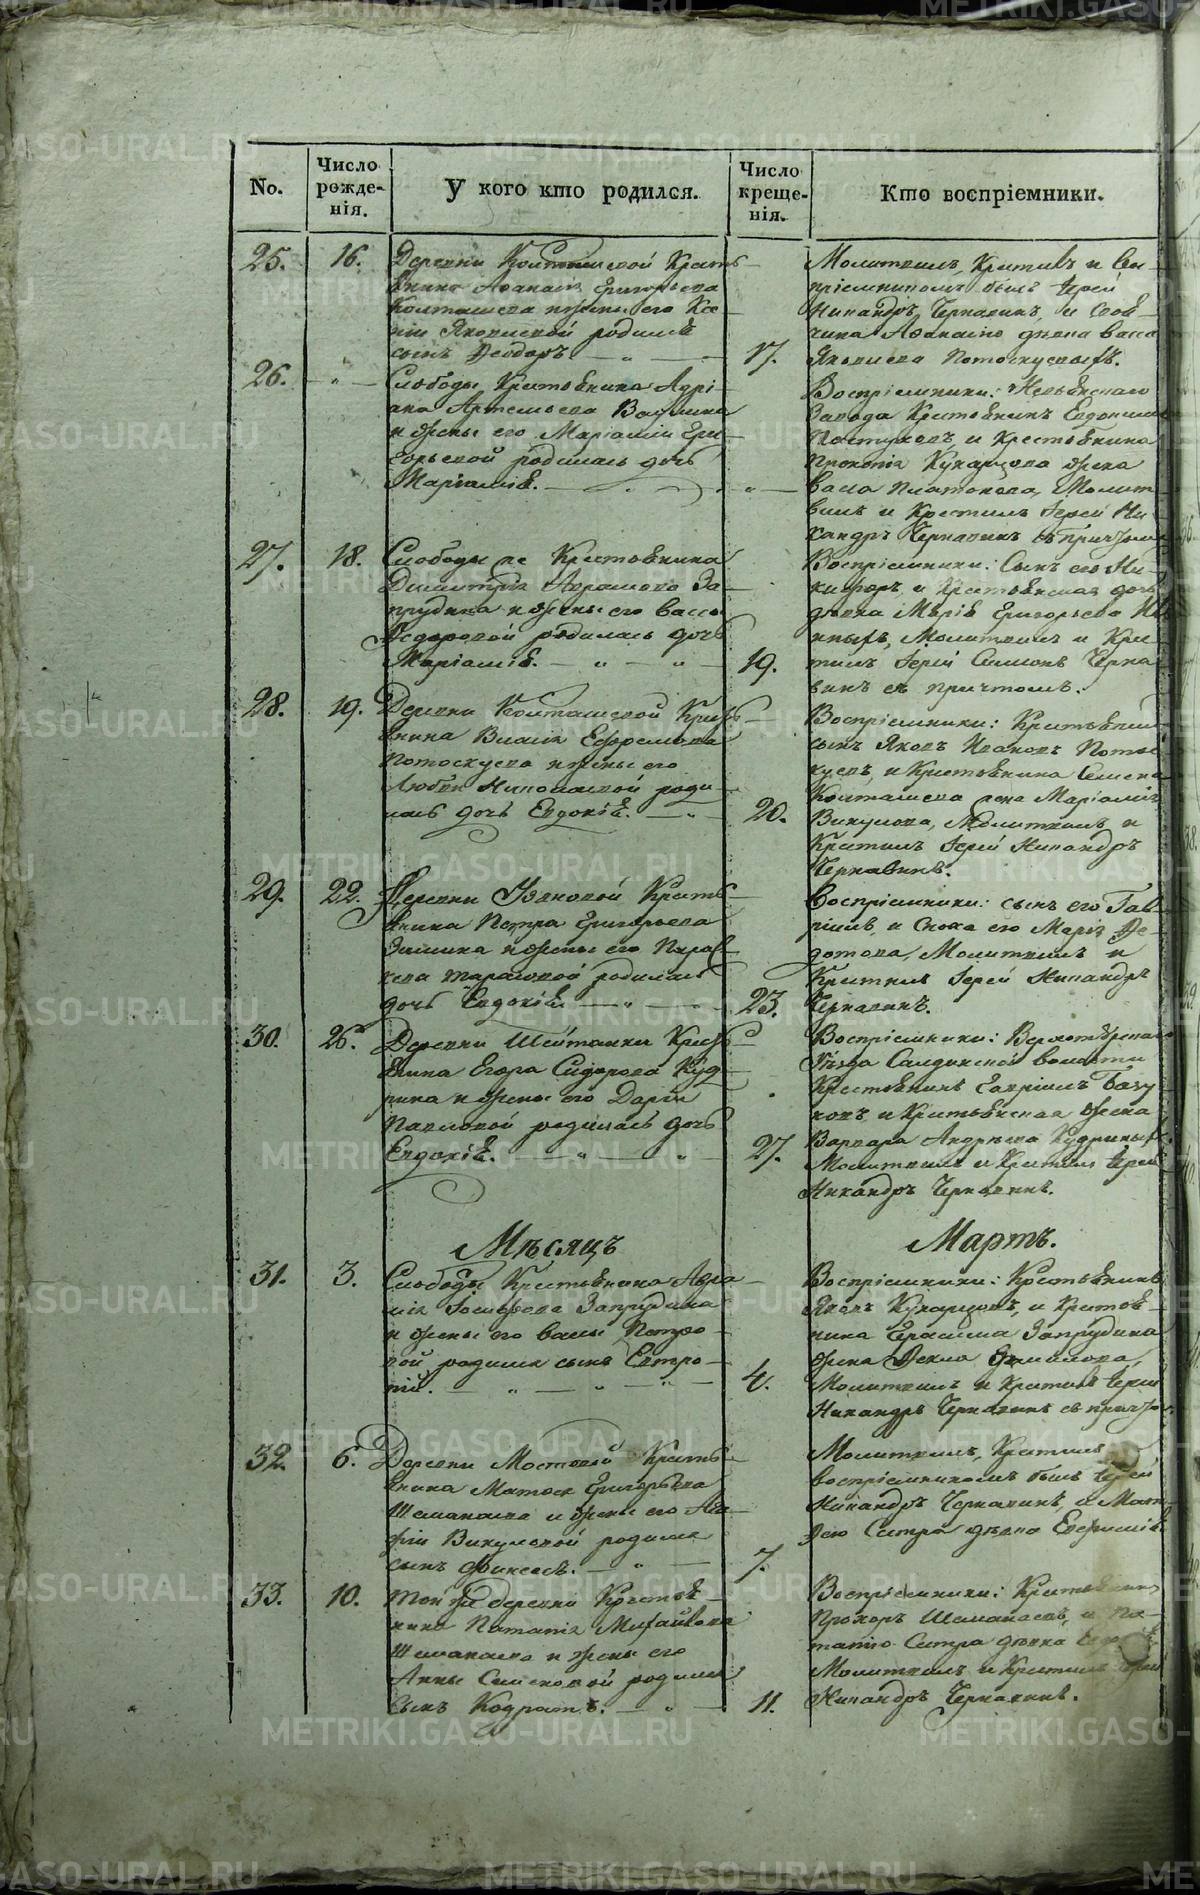 No.
Число рожденія.
У кого кто родился.
Число крещенія.
Кто воспріемники.
25.
16.
Деревни Колташевой Кресть-
янина Афанасія Григорьева
Колташева и жены его Ксе-
ніи Яковлевой родился
сынъ Ѳеодоръ.
17.
Молитвилъ, Крестилъ и во-
пріемникомъ былъ Іерей
Никандръ Чернавинъ, и своя-
чина Афанасію дѣвка Васса
Яковлева Потоскуевыхъ.
26.
Слободы, Крестьянина Адрі-
ана Артемьева
и жены его Маріаміи Гри-
горьевой родилась дочь
Маріамія.
Воспріемники: Невьянскаго
Завода Крестьянинъ Евдокимъ
Пастуховъ, и Крестьянина
Прокопія Кухарцова жена
Васса Платонова, Молит-
вилъ и Крестилъ Іерей Ни-
кандръ Чернавинъ съ причтомъ
27.
18.
Слободы же Крестьянина
Димитрія Аврамова За-
прудина и жены его Вассы
Ѳедоровой родилась дочь
Маріамія.
19.
Воспріемники: Сынъ его Ни-
кифоръ, и Крестьянская дочь
дѣвка Марія Григорьева
Молитвилъ и Кре-
стилъ Іерей Симеонъ Черна-
винъ съ причтомъ.
28.
19.
Деревни Колташевой Кресть-
янина Власія Ефремова
Потоскуева и жены его
Любви Николаевой роди-
лась дочь Евдокія.
20.
Воспріемники: Крестьянскій
сынъ Яковъ Ивановъ Потос-
куевъ, и Крестьянина Семена
Колташева жена Маріамія
Викулова, Молитвилъ и
Крестилъ Іерей Никандръ
Чернавинъ.
29.
22.
Деревни Кресть-
янина Петра Григорьева
Зимина и жены его Парас-
кевы Тарасовой родилась
дочь Евдокія
23.
Воспріемники: сынъ его Гав-
ріилъ, и Сноха его Марѳа Ѳе-
дотова, Молитвилъ и
Крестилъ Іерей Никандръ
Чернавинъ.
30.
26.
Деревни Шайтанки Кресть-
янина Егора Сидорова Куд-
рина и жены его Даріи
Павловой родилась дочь
Евдокія.
27.
Воспріемники: Верхотурскаго
Уѣзда Салдинской волости
Крестьянинъ Гавріилъ Базу-
новъ и Крестьянская жена
Варвара Андреева Кудриныхъ,
Молитвилъ и Крестилъ Іерей
Никандръ Чернавинъ.
Мѣсяцъ
Мартъ.
31.
3.
Слободы Крестьянина Авра-
мія Запрудина
и жены его Вассы Петро-
вой родился сынъ Евтро-
пій.
4.
Воспріемники: Крестьянинъ
Яковъ Кухарцовъ, и Крестья-
нина Герасима Запрудина
жена Ѳекла
Молитвилъ и Крестилъ Іерей
Никандръ Чернавинъ съ причтом.
32.
6.
Деревни Мостовой Кресть-
янина Матфея Григорьева
Шаманаева и жены его Ага-
фіи Викуловой родился
сынъ Алексѣй.
7.
Молитвилъ, Крестилъ
воспріемникомъ былъ Іерей
Никандръ Чернавинъ, и Мат-
фею Сестра дѣвка Евфимія.
33.
10.
Той же деревни Крестья-
нина Потапія Михайлова
Шаманаева и жены его
Анны Семеновой родился
Сынъ Кодратъ.
11.
Воспріемники: Крестьянинъ
Прохоръ Шаманаевъ, и По-
тапію Сестра дѣвка
Молитвилъ и Крестилъ Іерей
Никандръ Чернавинъ.
METRIKI.GASO-URAL.RU